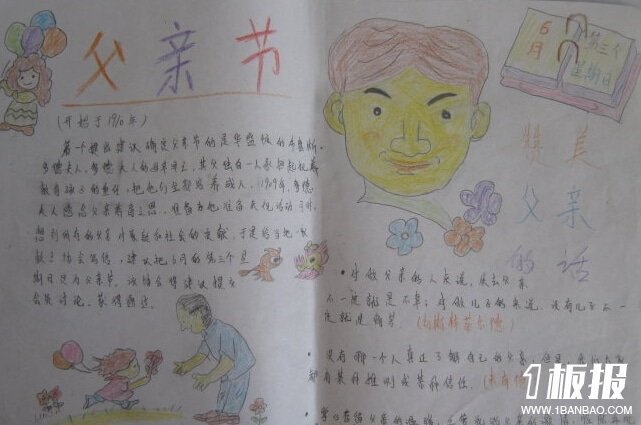 父亲节
(开始于1910年)
第一个提出建议确定父亲节的是华盛顿的布鲁斯·
多德夫人。多德夫人的母早亡,其父独自一人承担起抚养
教育孩子的重任,把他们全部培养成人。1909年,多德
夫人感念父亲养育之恩,准备为他准备庆祝活动,同时,
想到所有的父亲对家庭和社会的贡献,于是给当地一
教士协会写信,建议把6月的第三个星
期日定为父亲节。该协会将建议提交
会员讨论,获得通过。
6月
第三个
星期日
赞美
父亲
的话
· 对做父亲的人来说,失去父亲
不一定就是不幸;对做儿子的来说,没有儿子不一
定就是痛苦。
· 没有哪一个人真正了解自己的父亲,但是,
都有某种推测或某种信任。
1板报
WWW.1BANBAO.COM